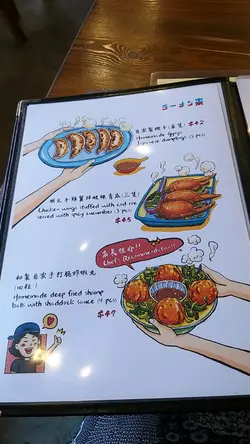 ラーメン
自家製餃子(五隻) $42
Homemade Gyoza
Japanese dumplings (5 pcs)
明太子雞翼拼脆辣青瓜(三隻)
Chicken wings stuffed with cod roe
served with spicy cucumber (3 pcs)
$45
店長推介!!
Chef Recommendations!
和製自家手打脆炸蝦丸
(四粒)
Homemade deep fried shrimp
balls with shaddock sauce (4 pcs)
$49